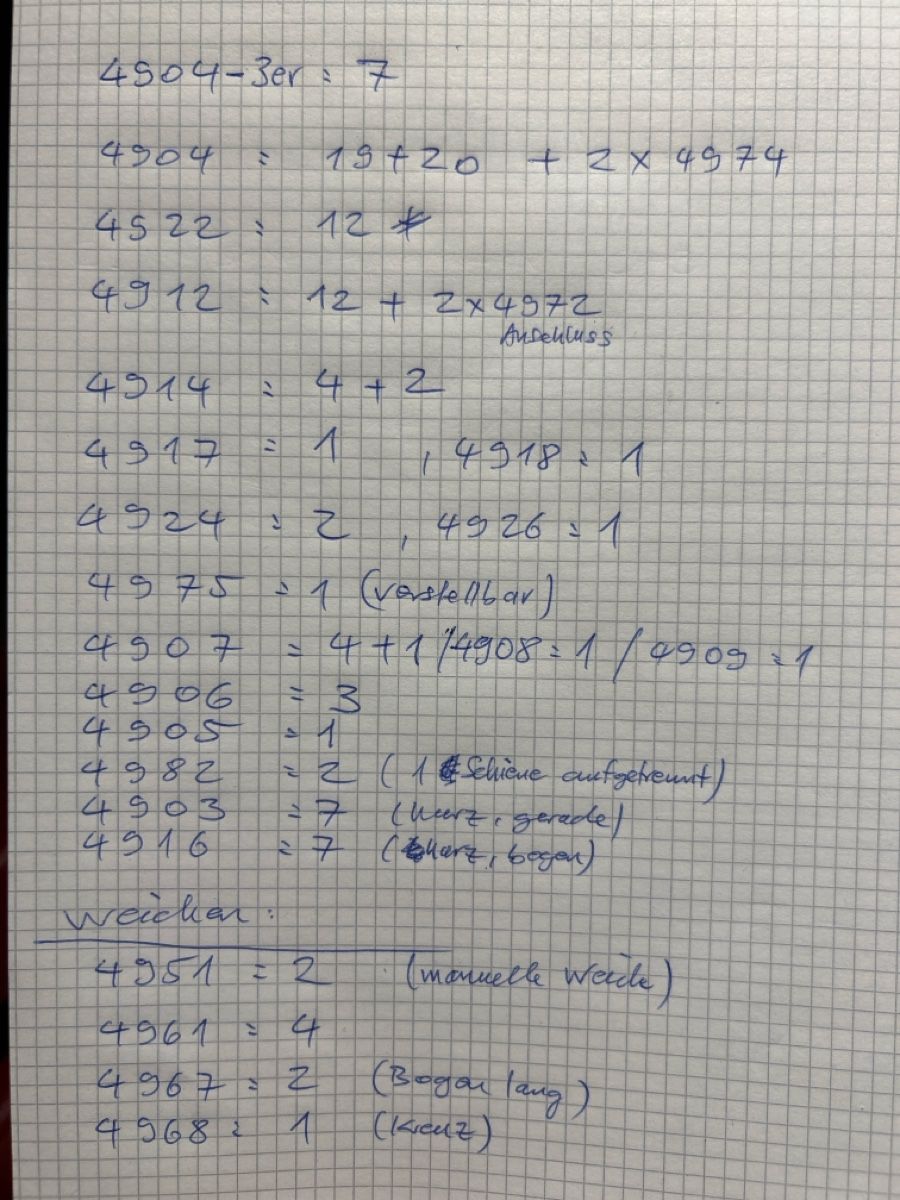 4904-3er = 7
4904 = 19+20 + 2 x 4974
4922 = 12
4912 = 12 + 2x4972
Anschluss
4914 = 4 + 2
4917 = 1 , 4918 = 1
4924 = 2 , 4926 = 1
4975 = 1 (verstellbar)
4907 = 4 + 1 / 4908 = 1 / 4909 = 1
4906 = 3
4905 = 1
4982 = 2 ( 1 Schiene aufgetrennt)
4903 = 7 (kurz, gerade)
4916 = 7 (kurz, bogen)
Weichen:
4951 = 2 (manuelle Weiche)
4961 = 4
4967 = 2 (Bogen lang)
4968 = 1 (Kreuz)